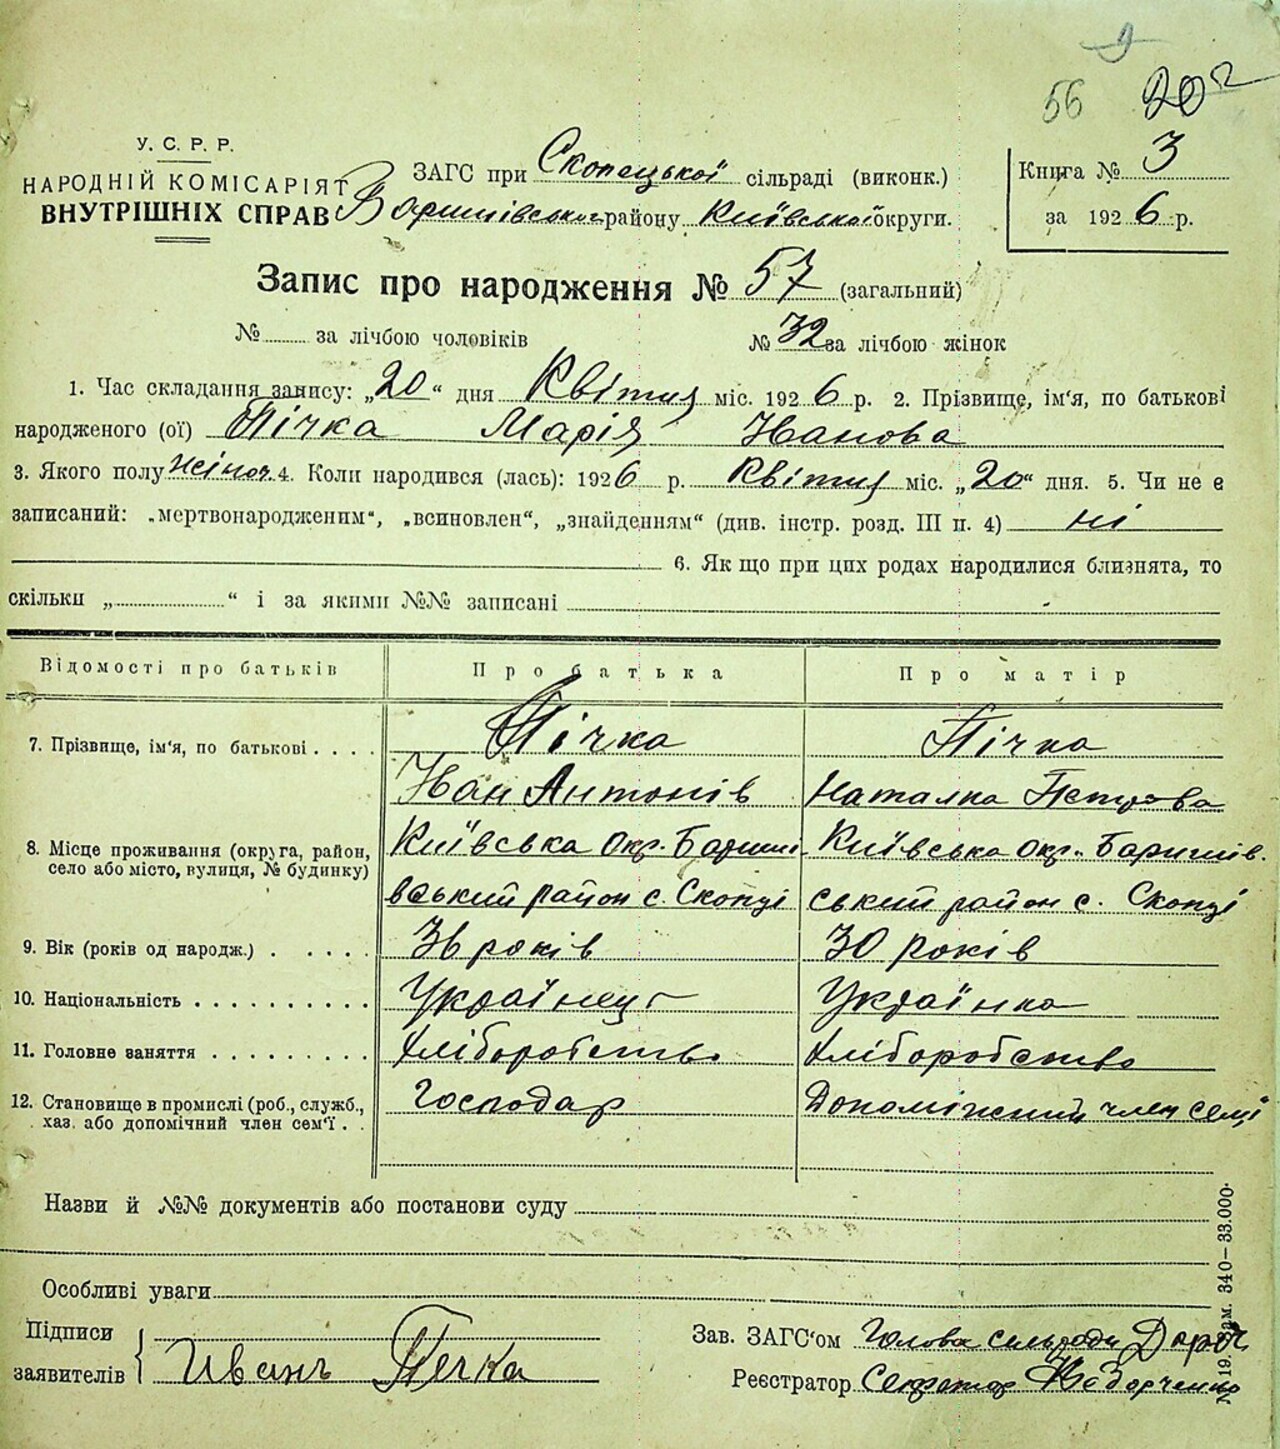 9
56 20
У. С. Р. Р.
НАРОДНІЙ КОМІСАРІЯТ
ВНУТРІШНІХ СПРАВ
ЗАГС при Скопецької сільраді (виконк.)
Баришівського району Київської округи.
Книга № 3
за 1926 р.
Запис про народження № 57 (загальний)
№ ......... за лічбою чоловіків № 32 за лічбою жінок
1. Час складання запису: „20“ дня Квітня міс. 1926 р. 2. Прізвище, ім‘я, по батькові
народженого (ої) Пічка Марія Іванова
3. Якого полу жіноч. 4. Коли народився (лась): 1926 р. Квітня міс. „20“ дня. 5. Чи не є
записаний: „мертвонародженим“, „всиновлен“, „знайденням“ (див. інстр. розд. III п. 4) ні
6. Як що при цих родах народилися близнята, то
скільки „..................“ і за якими №№ записані
Відомості про батьків Про батька Про матір
7. Прізвище, ім‘я, по батькові . . . . Пічка Пічка
Іван Антонів Наталка Петрова
8. Місце проживання (округа, район, Київська окр. Бариші- Київська окр. Баришів-
село або місто, вулиця, № будинку) вський район с. Скопці ський район с. Скопці
9. Вік (років од народж.) . . . . . 36 років 30 років
10. Національність . . . . . . . . . . Українець Українка
11. Головне заняття . . . . . . . . . Хліборобство Хліборобство
12. Становище в промислі (роб., служб., Господар Допоміжний член семї
хаз. або допомічний член сем‘ї . .
Назви й №№ документів або постанови суду
Особливі уваги
Підписи
заявителів Иванъ Печка
Зав. ЗАГС‘ом Голова сельради
Реєстратор Секретар
340—33.000.